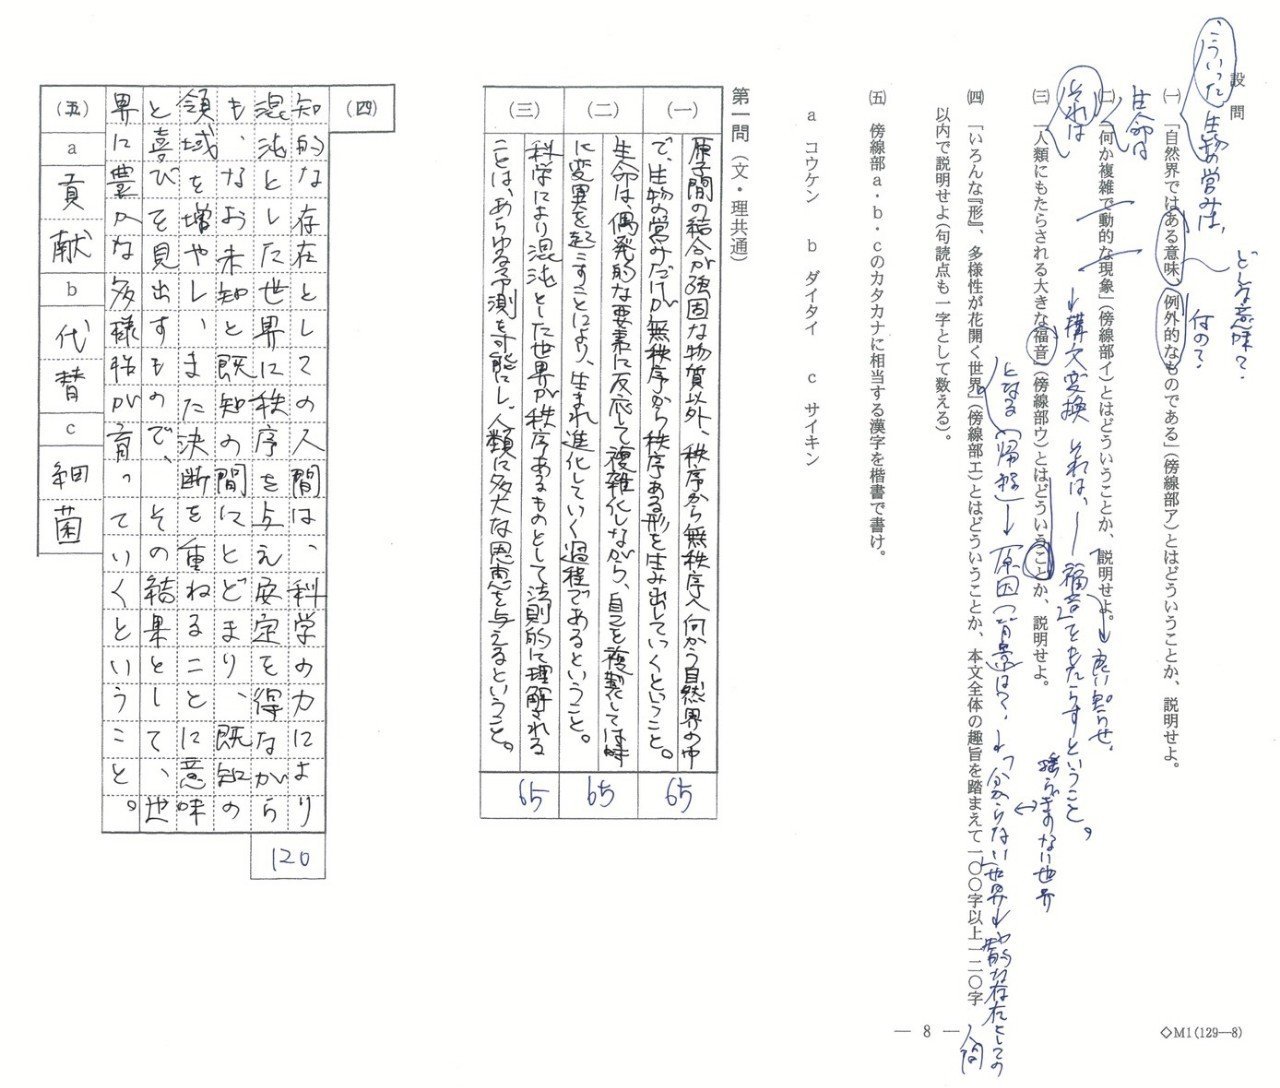 設問
こういった生物の営みは、
どんな意味？
何の？
㈠ 「自然界ではある意味、例外的なものである」（傍線部ア）とはどういうことか、説明せよ。
生命は
㈡ 「何か複雑で動的な現象」（傍線部イ）とはどういうことか、説明せよ。
それは
→構文変換 それは、―福音をもたらすということ。
→良い知らせ、
㈢ 「人類にもたらされる大きな福音」（傍線部ウ）とはどういうことか、説明せよ。
揺らぎのない世界
となる（帰結）→原因（背景は？）→「分からない世界」→知的な存在としての人間
㈣ 「いろんな『形』、多様性が花開く世界」（傍線部エ）とはどういうことか、本文全体の趣旨を踏まえて一〇〇字以上一二〇字
以内で説明せよ（句読点も一字として数える）。
㈤ 傍線部a・b・cのカタカナに相当する漢字を楷書で書け。
a コウケン b ダイタイ c サイキン
— 8 —
◇M1(129—8)
第一問（文・理共通）
（一）
原子間の結合が強固な物質以外、秩序から無秩序へ向かう自然界の中
で、生物の営みだけが無秩序から秩序ある形を生み出していくということ。
65
（二）
生命は、偶発的な要素に反応して複雑化しながら、自己を複製しては時
に変異を起こすことにより、生まれ進化していく過程であるということ。
65
（三）
科学により混沌とした世界が秩序あるものとして法則的に理解される
ことは、あらゆる予測を可能にし、人類に多大な恩恵を与えるということ。
65
（四）
知的な存在としての人間は、科学の力により
混沌とした世界に秩序を与え安定を得ながら
も、なお未知と既知の間にとどまり、既知の
領域を増やし、また決断を重ねることに意味
と喜びを見出すもので、その結果として、世
界に豊かな多様性が育っていくということ。
120
（五）
a
貢献
b
代替
c
細菌